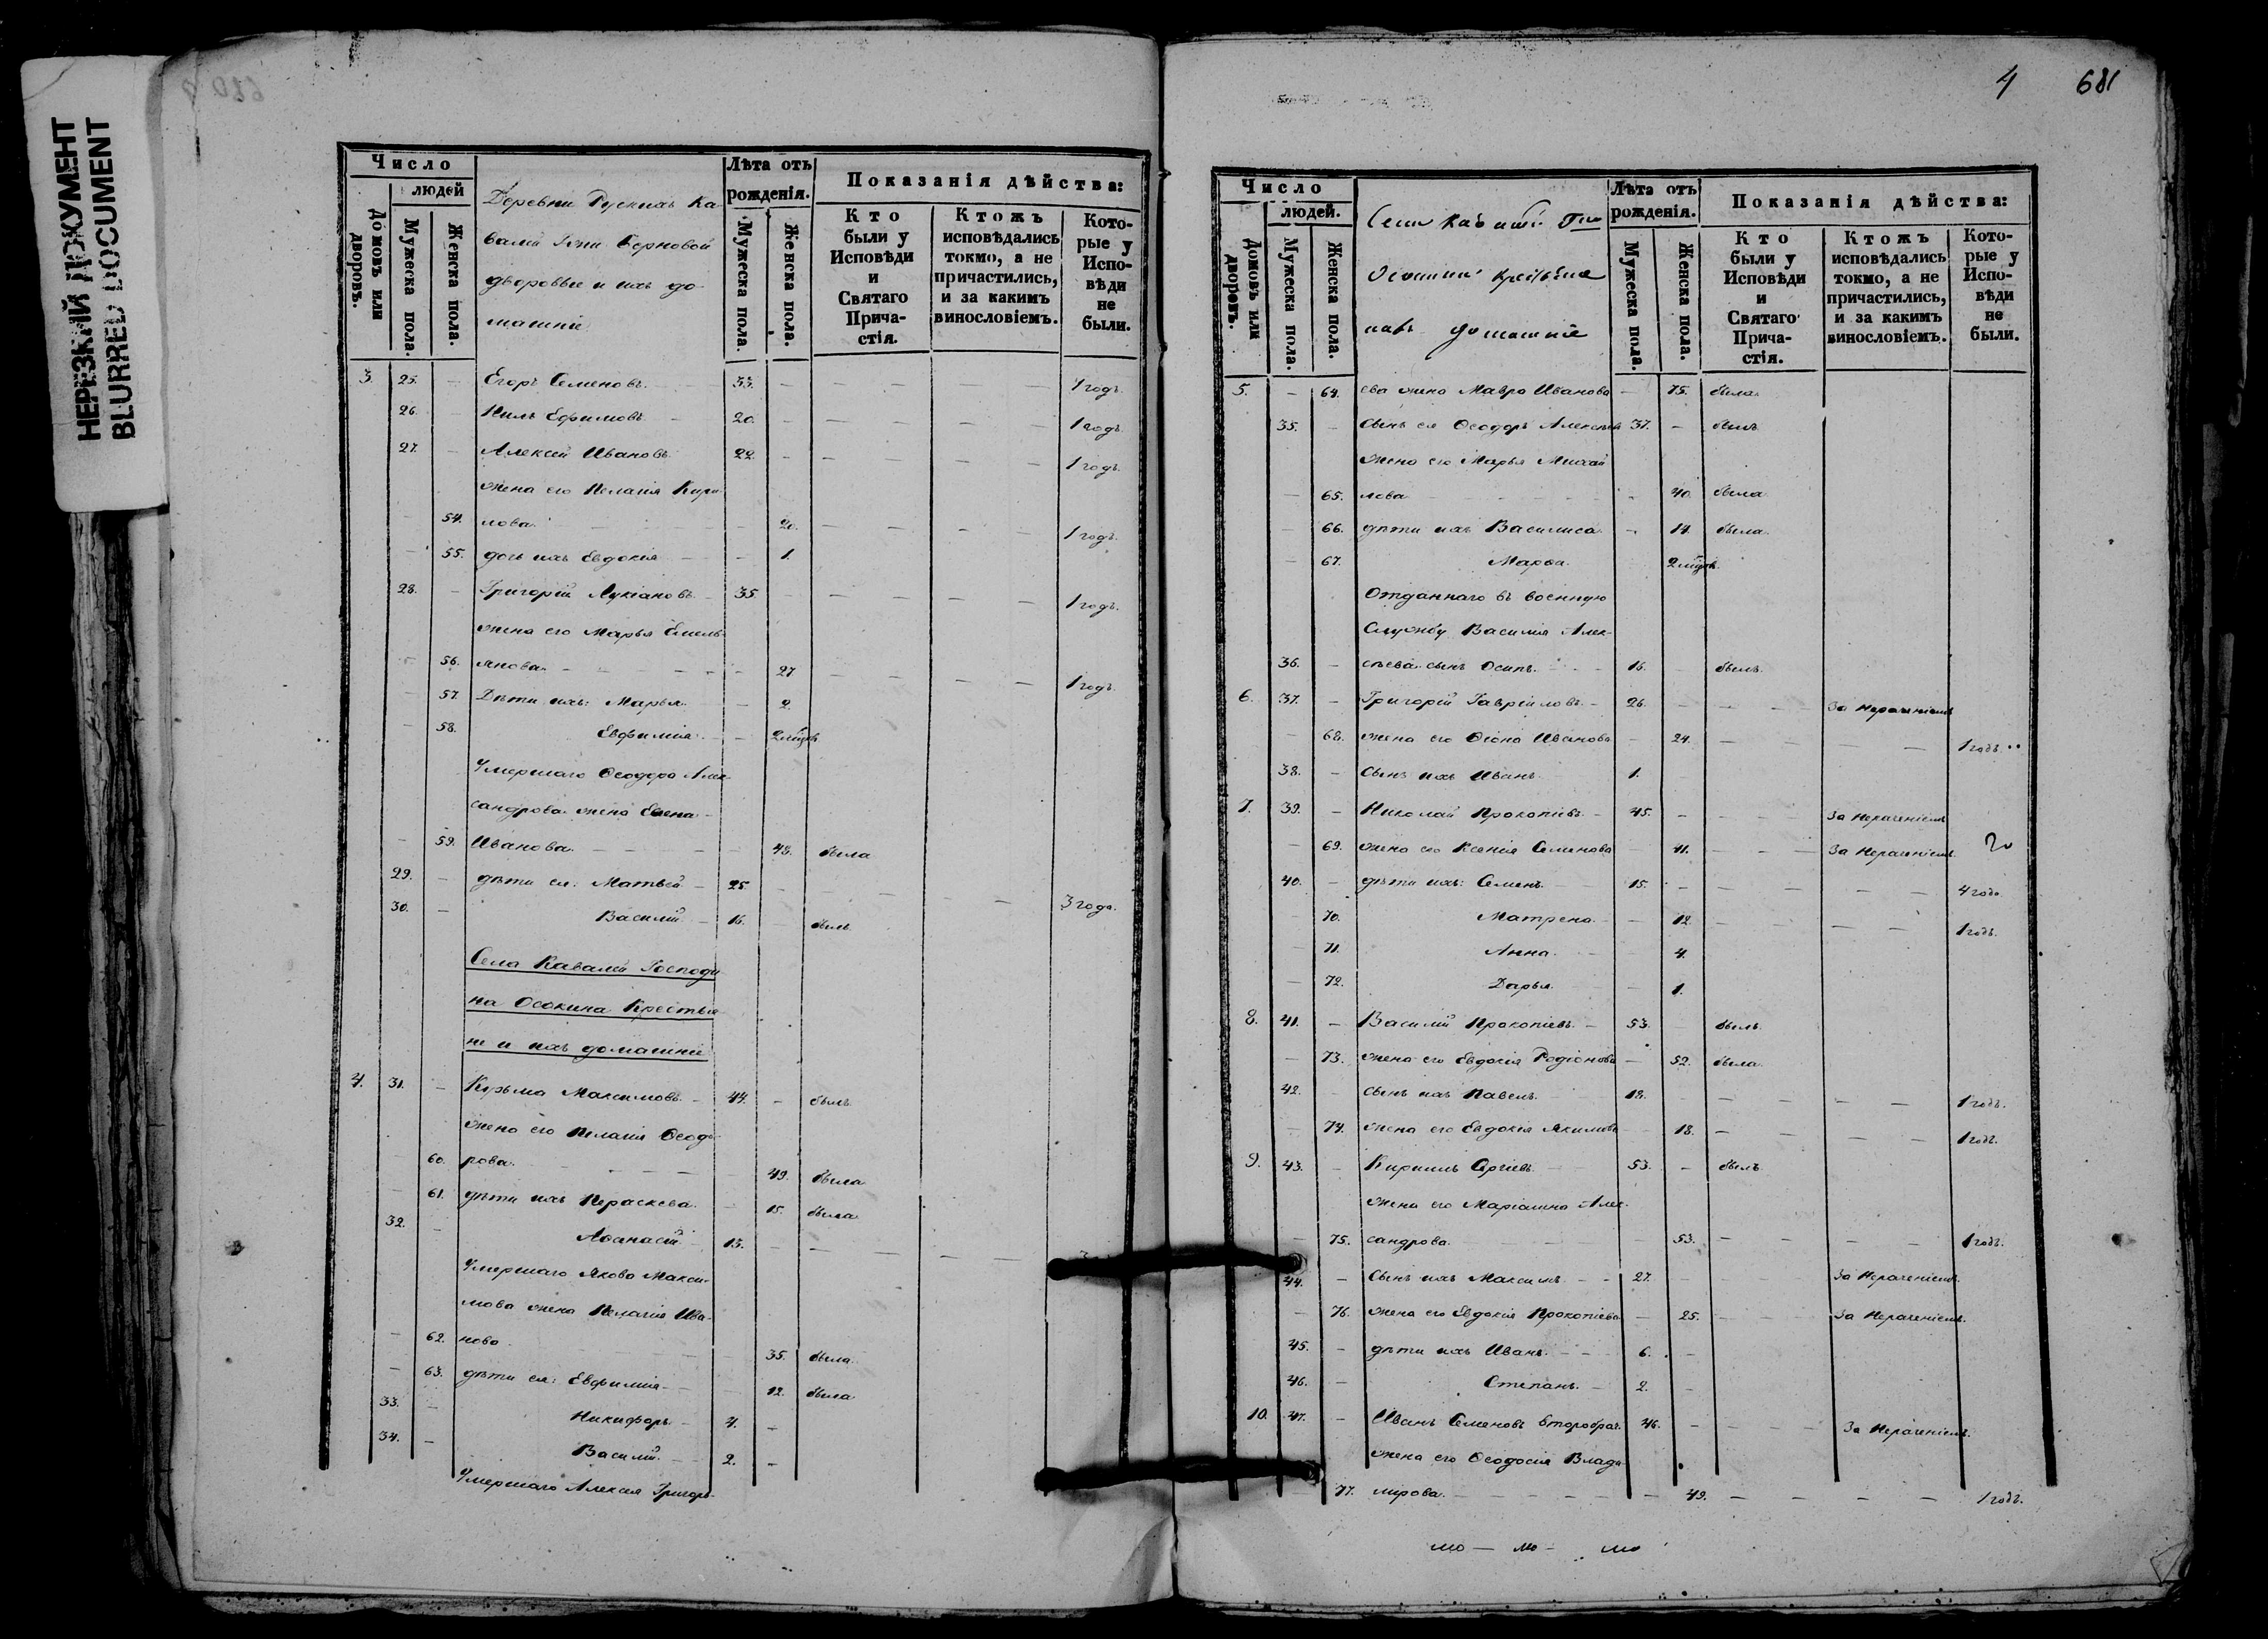 НЕРЕЗКИЙ ДОКУМЕНТ
BLURRED DOCUMENT
Число
людей
Домовъ или дворовъ.
Мужеска пола.
Женска пола.
Деревни Рускихъ Ка-
валей Гпжи
дворовые и ихъ до-
машніе
Лѣта отъ рожденія.
Мужеска пола.
Женска пола.
Показанія дѣйства:
Кто были у Исповѣди и Святаго Прича-стія.
Ктожъ исповѣдались токмо, а не причастились, и за какимъ винословіемъ.
Кото-рые у Испо-вѣди не были.
3. 25. — Егоръ Семеновъ. 33. — — — — 1 годъ.
26. Нилъ Ефимовъ 20. — — — — 1 годъ
27. Алексѣй Ивановъ 22. — — — — 1 годъ
жена его Пелагія Кири-
54. лова 20. — — — — 1 годъ.
55. дочь ихъ Евдокія — 1.
28. — Григорій Лукіановъ 35. — — — — 1 годъ.
жена его Марья Емель-
56. янова — 27 — — — — 1 годъ
57. Дѣти ихъ: Марья — 2.
58. Евфимія — 2 мѣся
Умершаго Ѳеодора Алек-
сандрова жена Елена
59. Иванова 48. была
29. — дѣти ея: Матвей 25. — — — 3 года.
30. — Василій 16. былъ
Села Кавалей Господи
на Осокина Крестья
не и ихъ домашніе
4. 31. — Кузьма Максимовъ 44. — былъ
жена его Пелагія Ѳеодо-
60. рова 49. была
61. дѣти ихъ Параскева 15. была
32. — Аѳанасій 13. — — — —
Умершаго Якова Макси-
мова жена Пелагія Ива-
62. нова 35. была
63. дѣти ея: Евфимія 12. была
33. — Никифоръ 4. —
34. — Василій 2. —
Умершаго Алексея Григорь-
4 681
Число
людей.
Домовъ или дворовъ.
Мужеска пола.
Женска пола.
Села
Осокина крестьяне
ихъ домашніе
Лѣта отъ рожденія.
Мужеска пола.
Женска пола.
Показанія дѣйства:
Кто были у Исповѣди и Святаго Прича-стія.
Ктожъ исповѣдались токмо, а не причастились, и за какимъ винословіемъ.
Кото-рые у Испо-вѣди не были.
5. — 64. ева жена Мавра Иванова — 75. была
35. — Сынъ ея Ѳеодоръ Алексѣевъ 37. — былъ
жена его Марья Михаи
— 65. лова 40. была
— 66. дѣти ихъ Василиса — 14. была
— 67. Марѳа 2 мѣся
Отданнаго въ военную
Службу Василія Алек-
36. — сѣева сынъ Осипъ 16. былъ
6. 37. — Григорій Гавріиловъ 26. — — — За нераченіемъ
— 68. жена его Ѳіона Иванова — 24. — — — 1 годъ
38. — Сынъ ихъ Иванъ 1.
7. 39. — Николай Прокопіевъ 45. — — — За нераченіемъ
— 69. жена его Ксенія Семенова — 41. — — За нераченіемъ
40. — дѣти ихъ: Семенъ 15. — — — — 4 года
— 70. Матрена — 12. — — — 1 годъ.
— 71. Анна 4.
— 72. Дарья — 1.
8. 41. — Василій Прокопіевъ 53. былъ
— 73. жена его Евдокія Родіонова — 52. была
42. — сынъ ихъ Павелъ 18. — — — — 1 годъ.
— 74. жена его Евдокія Якимова 18. — — — 1 годъ.
9. 43. — Кирилъ Сергіевъ 53. — былъ
жена его Маріамна Алек-
— 75. сандрова 53. — — — 1 годъ.
44. — Сынъ ихъ Максимъ 27. — За нераченіемъ.
— 76. жена его Евдокія Прокопіева — 25. — — За нераченіемъ.
45. — дѣти ихъ Иванъ 6. —
46. — Степанъ 2. —
10. 47. — Иванъ Семеновъ второбрач. 46. — — — За нераченіемъ.
жена его Ѳеодосія Влади-
77. мірова — 49. — — — — 1 годъ.